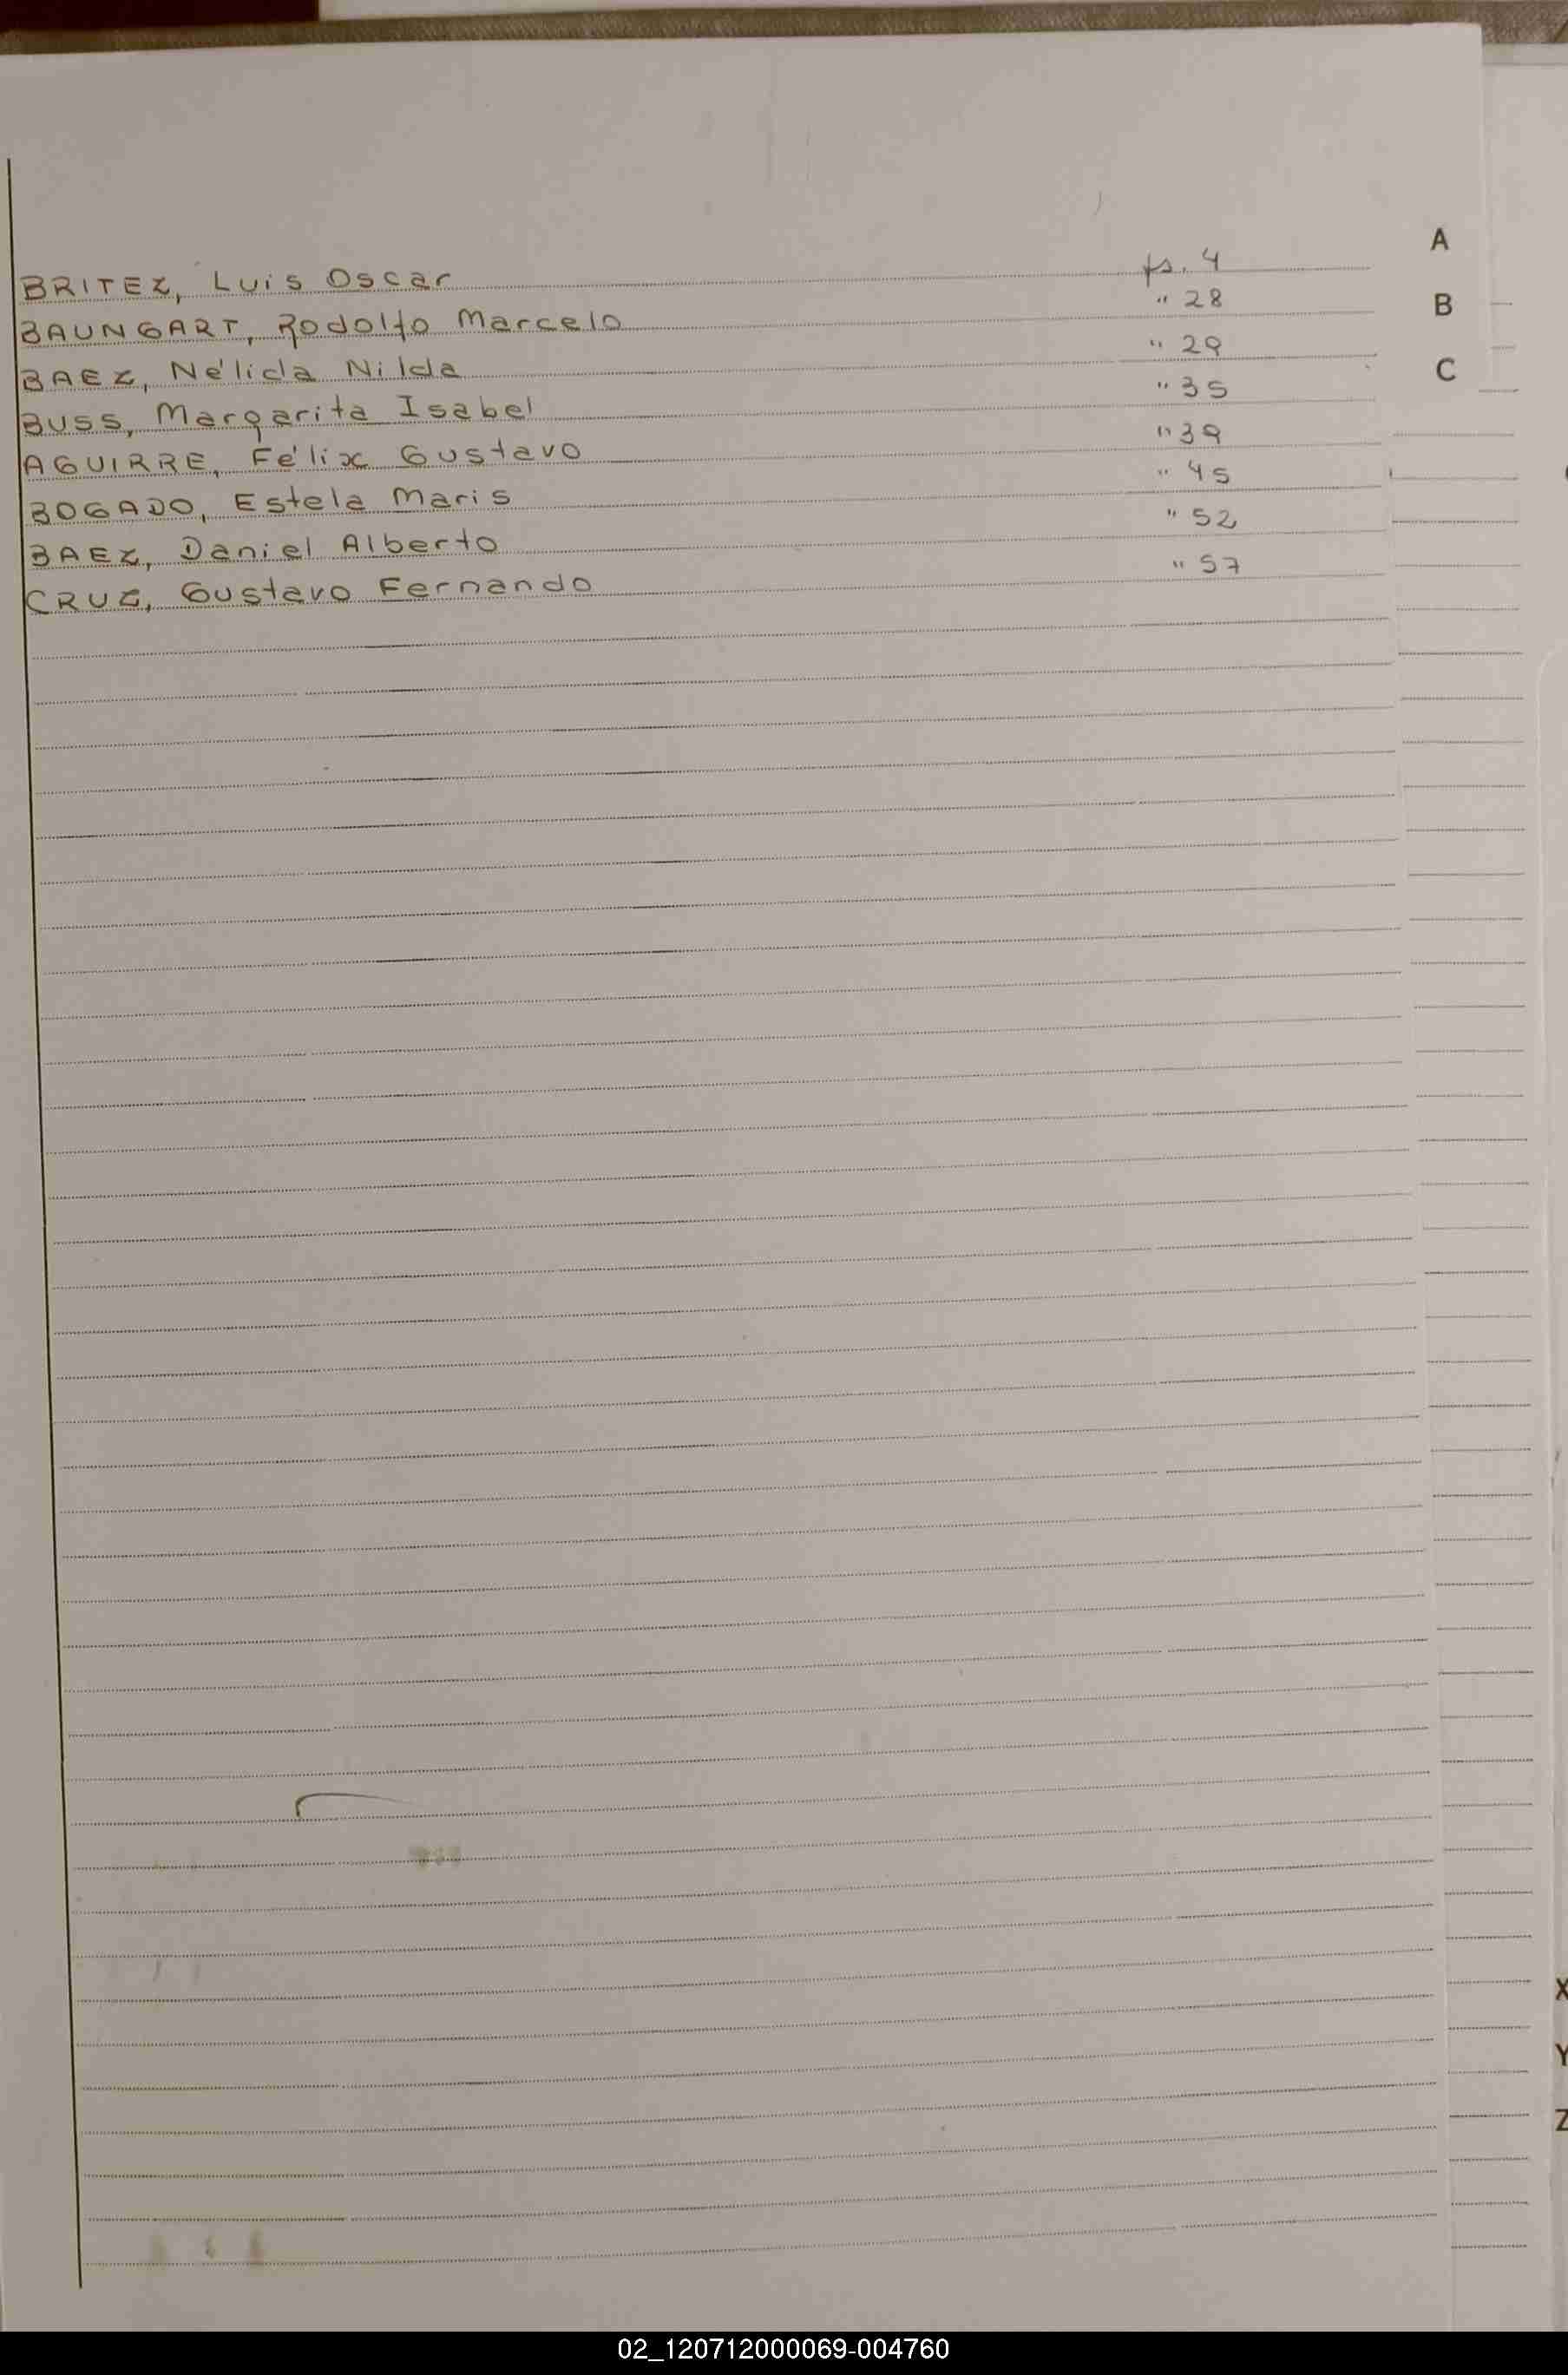 BRITEZ, Luis Oscar fs. 4
BAUNGART, Rodolfo Marcelo " 28
BAEZ, Nélida Nilda " 29
BUSS, Margarita Isabel " 35
AGUIRRE, Félix Gustavo " 39
BOGADO, Estela Maris " 45
BAEZ, Daniel Alberto " 52
CRUZ, Gustavo Fernando " 57
A
B
C
X
Y
Z
02_120712000069-004760